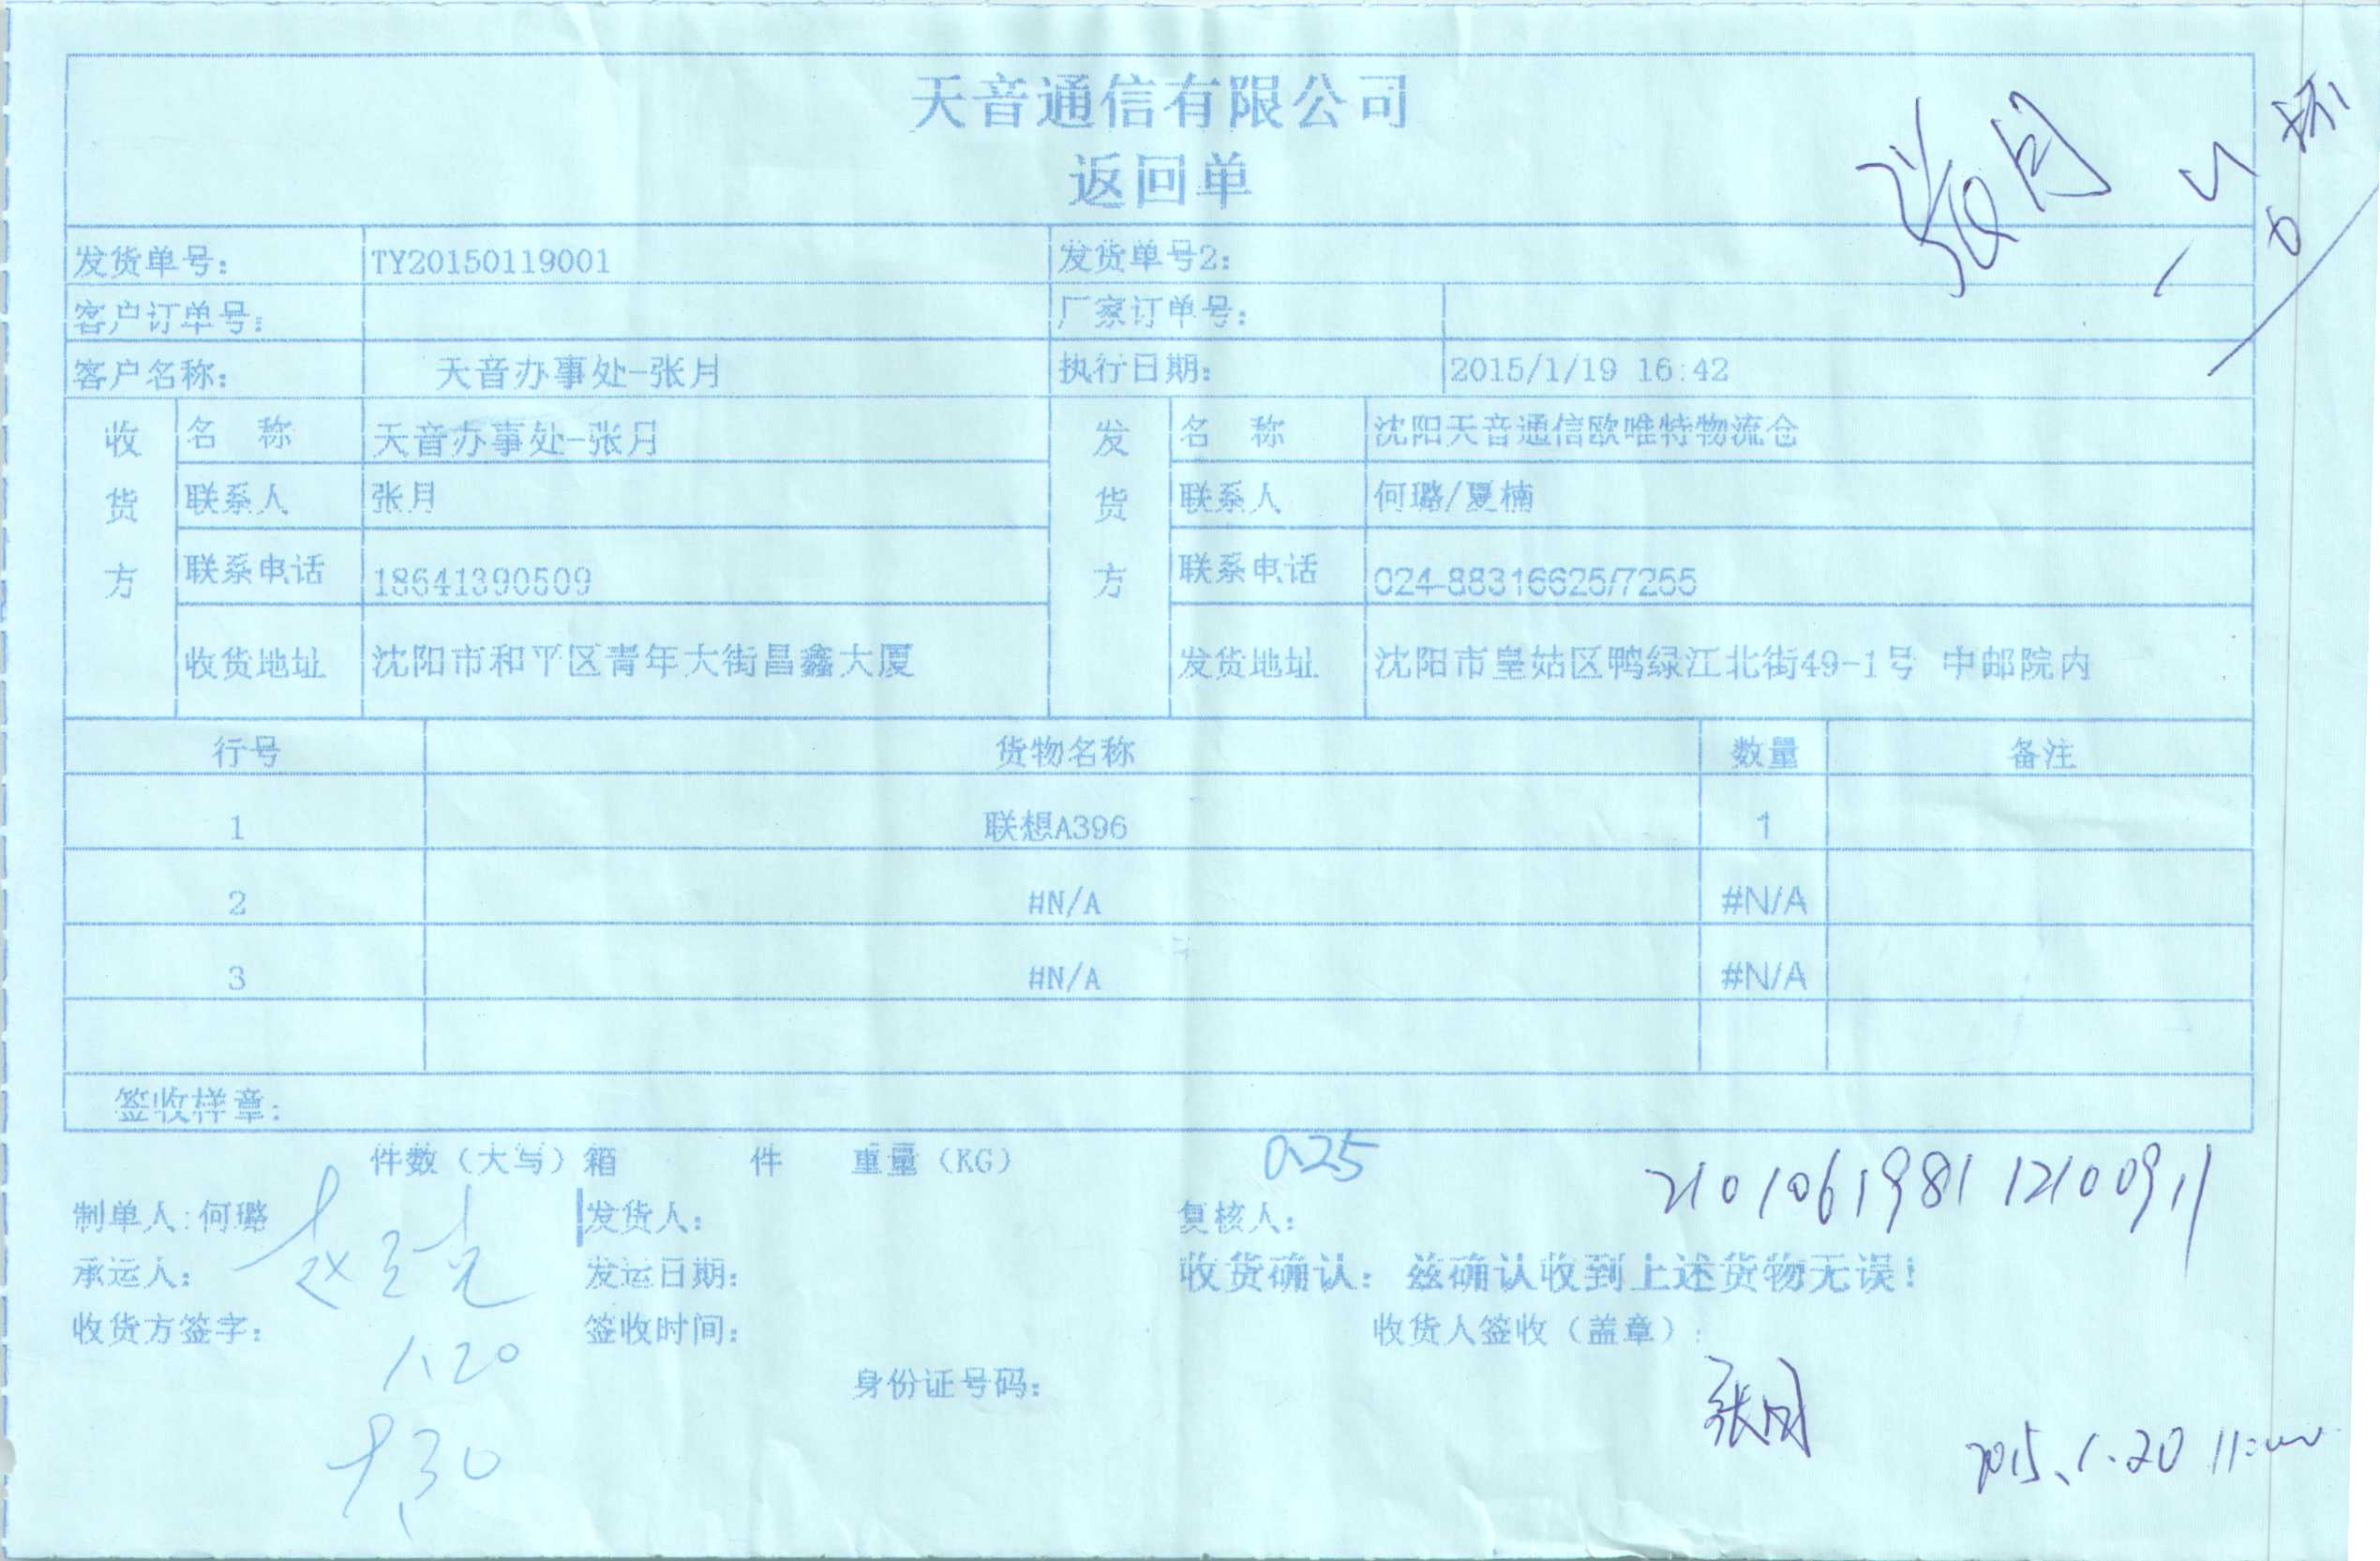 天音通信有限公司
返回单
张月
发货单号： TY20150119001 发货单号2：
客户订单号： 厂家订单号：
客户名称： 天音办事处-张月 执行日期： 2015/1/19 16:42
收货方 发货方
名 称 天音办事处-张月 名 称 沈阳天音通信欧唯特物流仓
联系人 张月 联系人 何璐/夏楠
联系电话 18641390509 联系电话 024-88316625/7255
收货地址 沈阳市和平区青年大街昌鑫大厦 发货地址 沈阳市皇姑区鸭绿江北街49-1号 中邮院内
行号 货物名称 数量 备注
1 联想A396 1
2 #N/A #N/A
3 #N/A #N/A
签收样章：
件数（大写）箱 件 重量（KG） 0.25
210106198112100911
制单人:何璐 发货人： 复核人：
承运人： 发运日期： 收货确认：兹确认收到上述货物无误！
收货方签字： 签收时间： 收货人签收（盖章）：
1.20
身份证号码：
张月
9.30
2015.1.20 11: